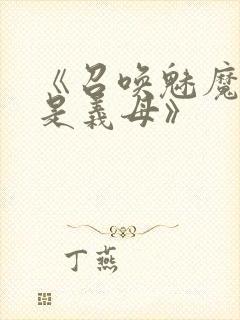 《召唤魅魔
是义母》
丁燕